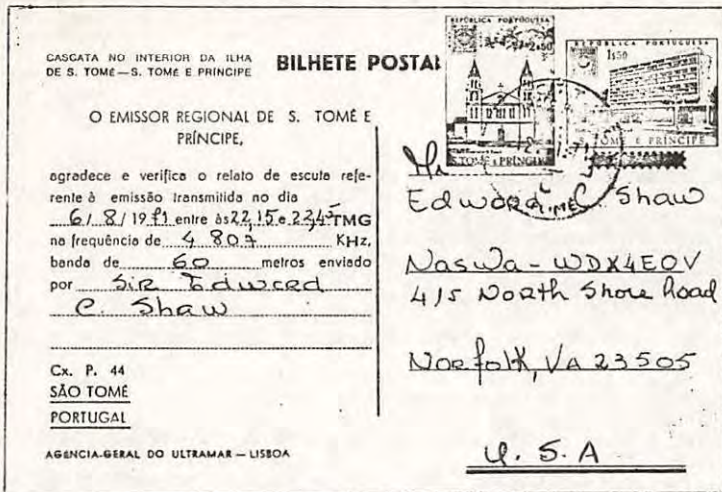 CASCATA NO INTERIOR DA ILHA
DE S. TOMÉ — S. TOMÉ E PRÍNCIPE
BILHETE POSTAL
O EMISSOR REGIONAL DE S. TOMÉ E
PRÍNCIPE,
agradece e verifica o relato de escuta refe-
rente à emissão transmitida no dia
6/8/1971 entre às 22,15 e 22,45 TMG
na frequência de 4 807 KHz,
banda de 60 metros enviado
por Sir Edward
C. Shaw
Cx. P. 44
SÃO TOMÉ
PORTUGAL
AGÊNCIA-GERAL DO ULTRAMAR — LISBOA
REPÚBLICA PORTUGUESA
2$50
S. TOMÉ e PRÍNCIPE
REPÚBLICA PORTUGUESA
1$50
TOMÉ E PRÍNCIPE
Mr
Edward C. Shaw
NasWa - WDX4EOV
415 North Shore Road
Norfolk, VA 23505
U.S.A